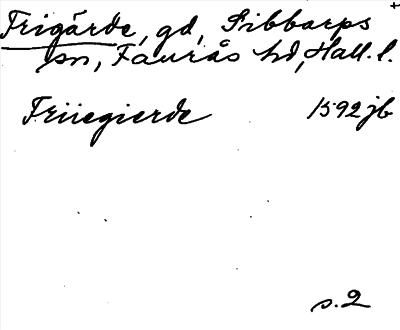 Frigärde, gd, Sibbarps +
sn, Faurås hd, Hall. l.
Früegierde 1592 jb
s. 2